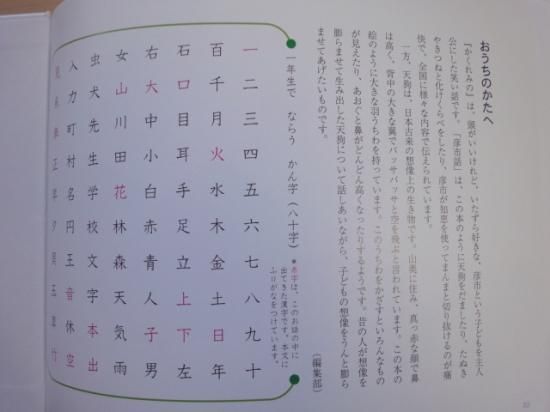 おうちのかたへ
『かくれみの』は、頭がいいけれど、いたずら好きな、彦市という子どもを主人
公にした笑い話です。「彦市話」は、この本のように天狗をだましたり、たぬき
やきつねと化けくらべをしたり、彦市が知恵を使ってまんまと切り抜けるのが痛
快で、全国に様々な内容で伝えられています。
一方、天狗は、日本古来の想像上の生き物です。山奥に住み、真っ赤な顔で鼻
は高く、背中の大きな翼でバッサバッサと空を飛ぶと言われています。この本の
絵のように大きな羽うちわを持っています。このうちわをかざすといろんなもの
が見えたり、あおぐと鼻がどんどん高くなったりするようです。昔の人が想像を
膨らませて生み出した天狗について話しあいながら、子どもの想像をうんと膨ら
ませてあげたいものです。
（編集部）
一年生で ならう かん字（八十字）
＊赤字は、このお話の中に
出てきた漢字です。本文に
ふりがなをつけています。
一二三四五六七八九十
百千月火水木金土日年
石口目耳手足立上下左
右大中小白赤青人子男
女山川田花林森天気雨
虫犬先生学校文字本出
入力町村名円王音休空
正早夕貝玉草竹
32